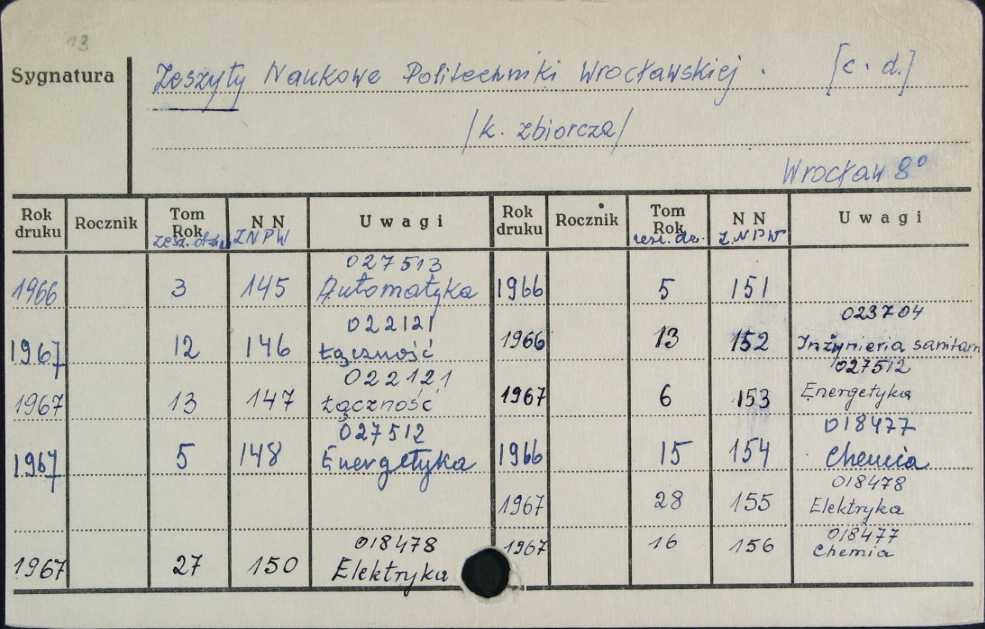 13
Sygnatura
Zeszyty Naukowe Politechniki Wrocławskiej. [c. d.]
/k. zbiorcza/
Wrocław 8°
Rok druku Rocznik Tom Rok N N ZNPW Uwagi
1966 3 145 027513 Automatyka
1967 12 146 022121 Łączność
1967 13 147 022121 Łączność
1967 5 148 027512 Energetyka
1967 27 150 018478 Elektryka
Rok druku Rocznik Tom Rok N N ZNPW Uwagi
1966 5 151
1966 13 152 023704 Inżynieria sanitarn
1967 6 153 027512 Energetyka
1966 15 154 018477 Chemia
1967 28 155 018478 Elektryka
1967 16 156 018477 Chemia